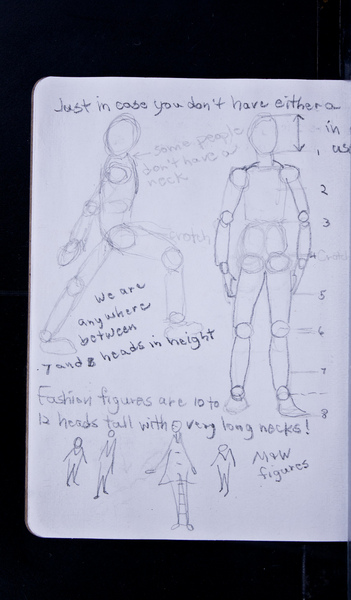 Just in case you don't have either a
in
us
some people
don't have a
neck
1
2
3
crotch
Crotch
we are
anywhere
between
7 and 8 heads in height
5
6
7
8
Fashion figures are 10 to
12 heads tall with very long necks!
M+W
figures